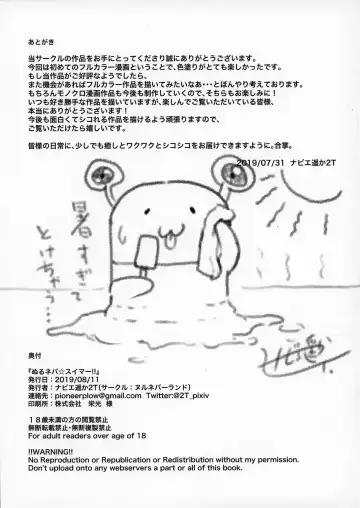 あとがき
当サークルの作品をお手にとってくださり誠にありがとうございます。
今回は初めてのフルカラー漫画ということで、色塗りがとても楽しかったです。
もし当作品がご好評なようでしたら、
また機会があればフルカラー作品を描いてみたいなあ・・とぼんやり考えております。
もちろんモノクロ漫画作品も今後も制作していくので、そちらもお楽しみに！
いつも好き勝手な作品を描いていますが、楽しんでご覧いただいている皆様、
本当にありがとうございます！
今後も面白くてシコれる作品を描けるよう頑張りますので、
ご覧いただけたら嬉しいです。
皆様の日常に、少しでも癒しとワクワクとシコシコをお届けできますように。合掌。
2019/07/31 ナビエ遥か2T
暑すぎて
とけちゃう…
ナビエ遥か
奥付
『ぬるネバ☆スイマー!!』
発行日：2019/08/11
発行者：ナビエ遥か2T(サークル：ヌルネバーランド)
連絡先：pioneerplow@gmail.com Twitter:@2T_pixiv
印刷所：株式会社 栄光 様
１８歳未満の方の閲覧禁止
無断転載禁止・無断複製禁止
For adult readers over age of 18
!!WARNING!!
No Reproduction or Republication or Redistribution without my permission.
Don't upload onto any webservers a part or all of this book.